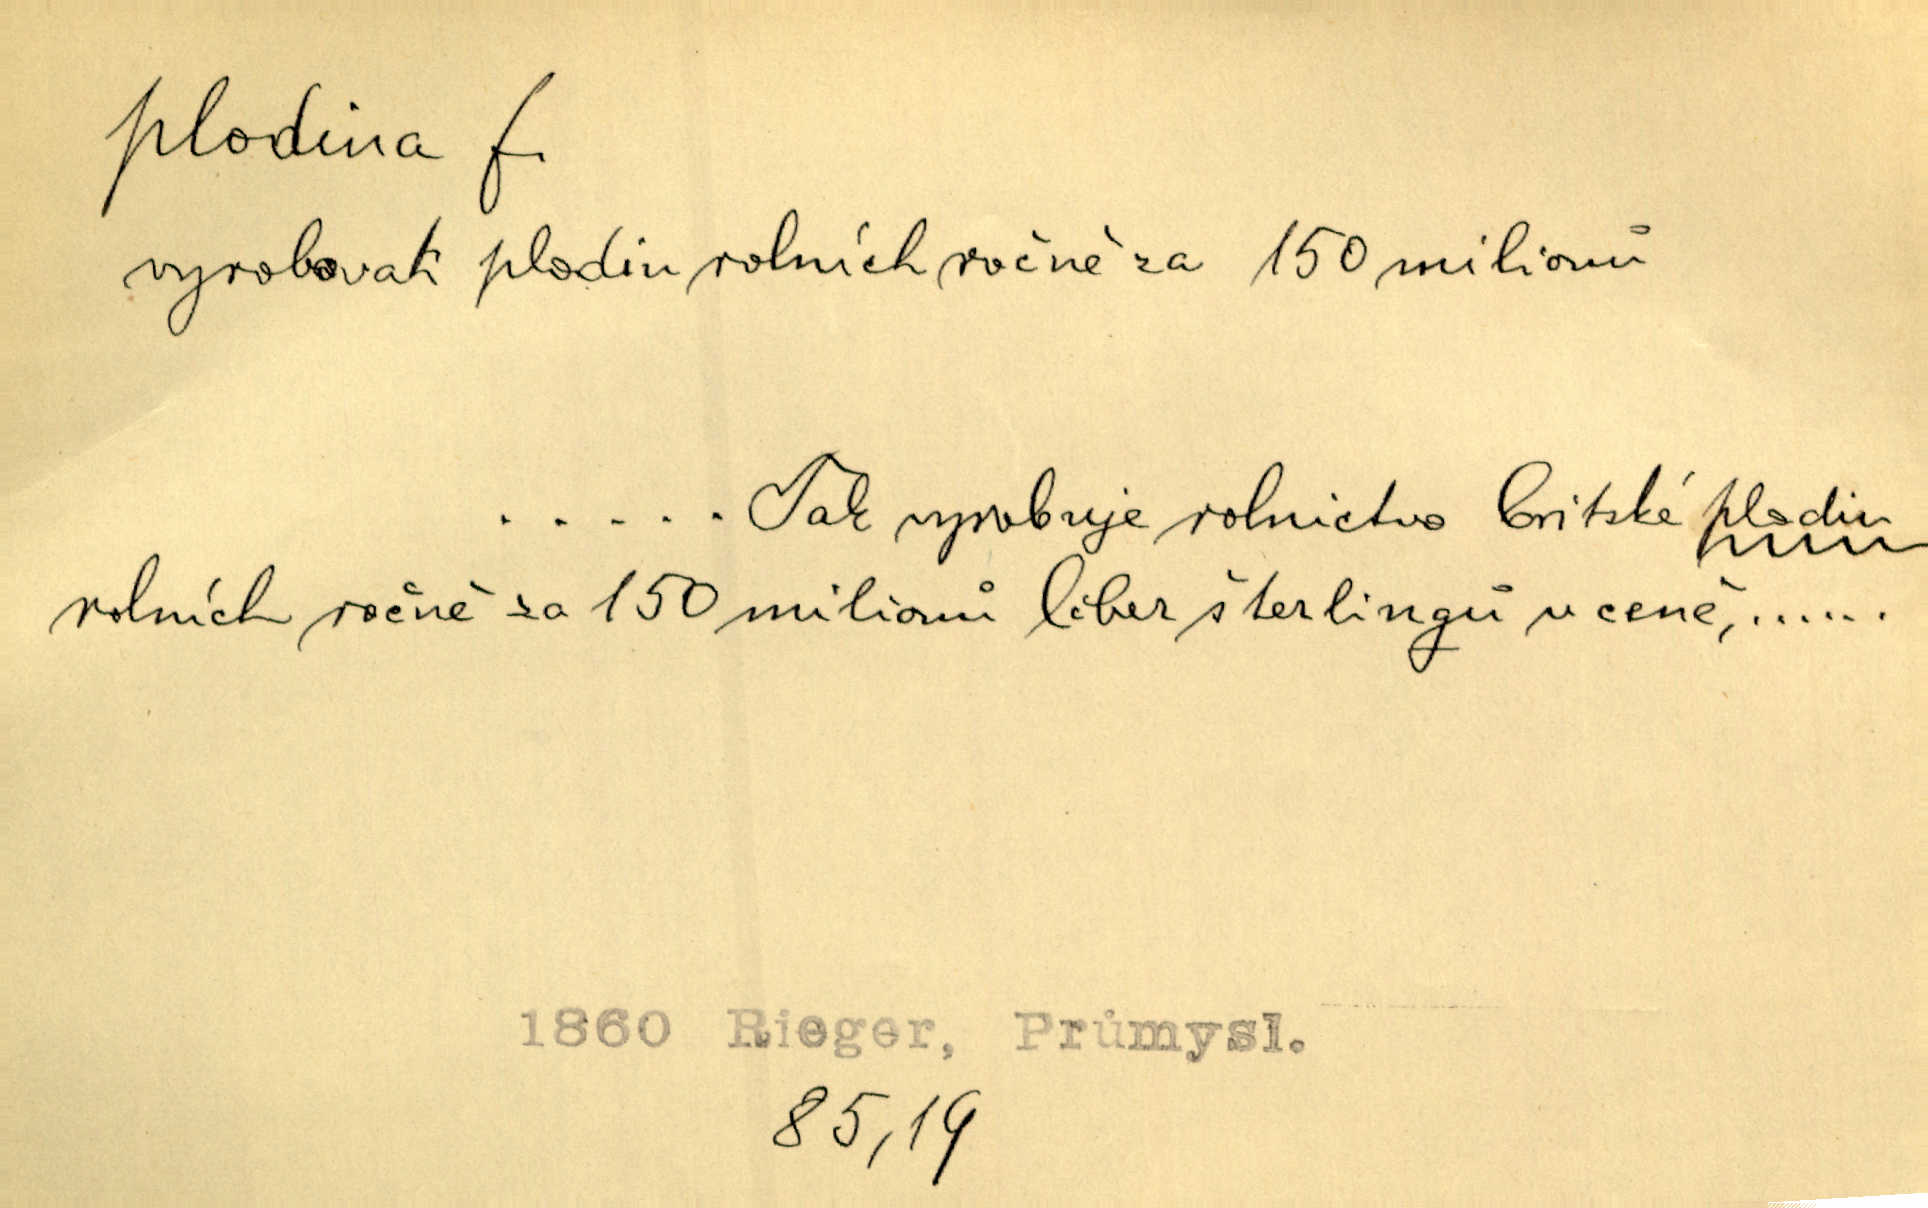 plodina f.
vyrobovati plodin rolních ročně za 150 milionů
. . . . . Tak vyrobuje rolnictvo britské plodin
rolních ročně za 150 milionů liber šterlingů v ceně, . . . . . .
1860 Rieger, Průmysl.
85,19